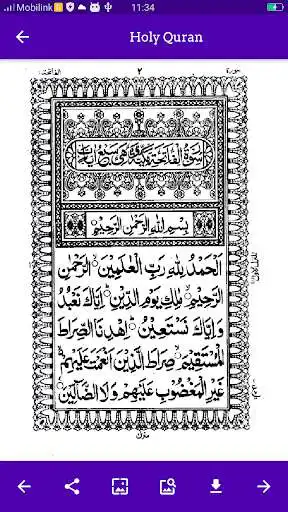 Mobilink
11:34
Holy Quran
سورة
٢
الفاتحة
بِسْمِ اللهِ الرَّحْمٰنِ الرَّحِيْمِ
اَلْحَمْدُ لِلّٰهِ رَبِّ الْعٰلَمِيْنَ ۙ الرَّحْمٰنِ
الرَّحِيْمِ ۙ مٰلِكِ يَوْمِ الدِّيْنِ ۗ اِيَّاكَ نَعْبُدُ
وَاِيَّاكَ نَسْتَعِيْنُ ۗ اِهْدِنَا الصِّرَاطَ
الْمُسْتَقِيْمَ ۙ صِرَاطَ الَّذِيْنَ اَنْعَمْتَ عَلَيْهِمْ
غَيْرِ الْمَغْضُوْبِ عَلَيْهِمْ وَلَا الضَّآلِّيْنَ